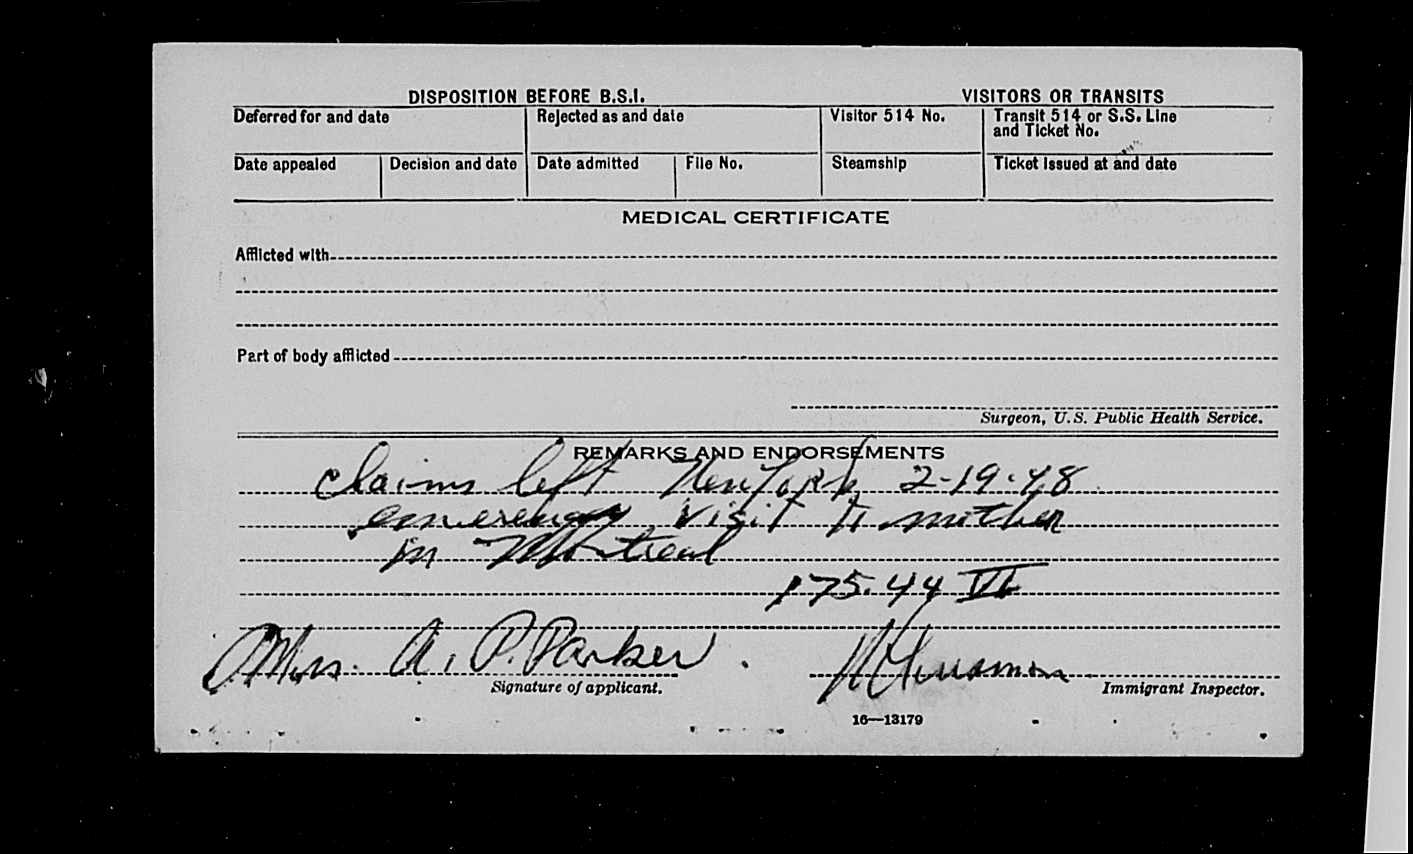 DISPOSITION BEFORE B.S.I. VISITORS OR TRANSITS
Deferred for and date Rejected as and date Visitor 514 No. Transit 514 or S.S. Line and Ticket No.
Date appealed Decision and date Date admitted File No. Steamship Ticket issued at and date
MEDICAL CERTIFICATE
Afflicted with
Part of body afflicted
Surgeon, U.S. Public Health Service.
REMARKS AND ENDORSEMENTS
Claims left New York 2-19-48
emergency visit to mother
in Montreal
175.44 VL
Mrs. A. P. Parker.
Signature of applicant. Immigrant Inspector.
16—13179